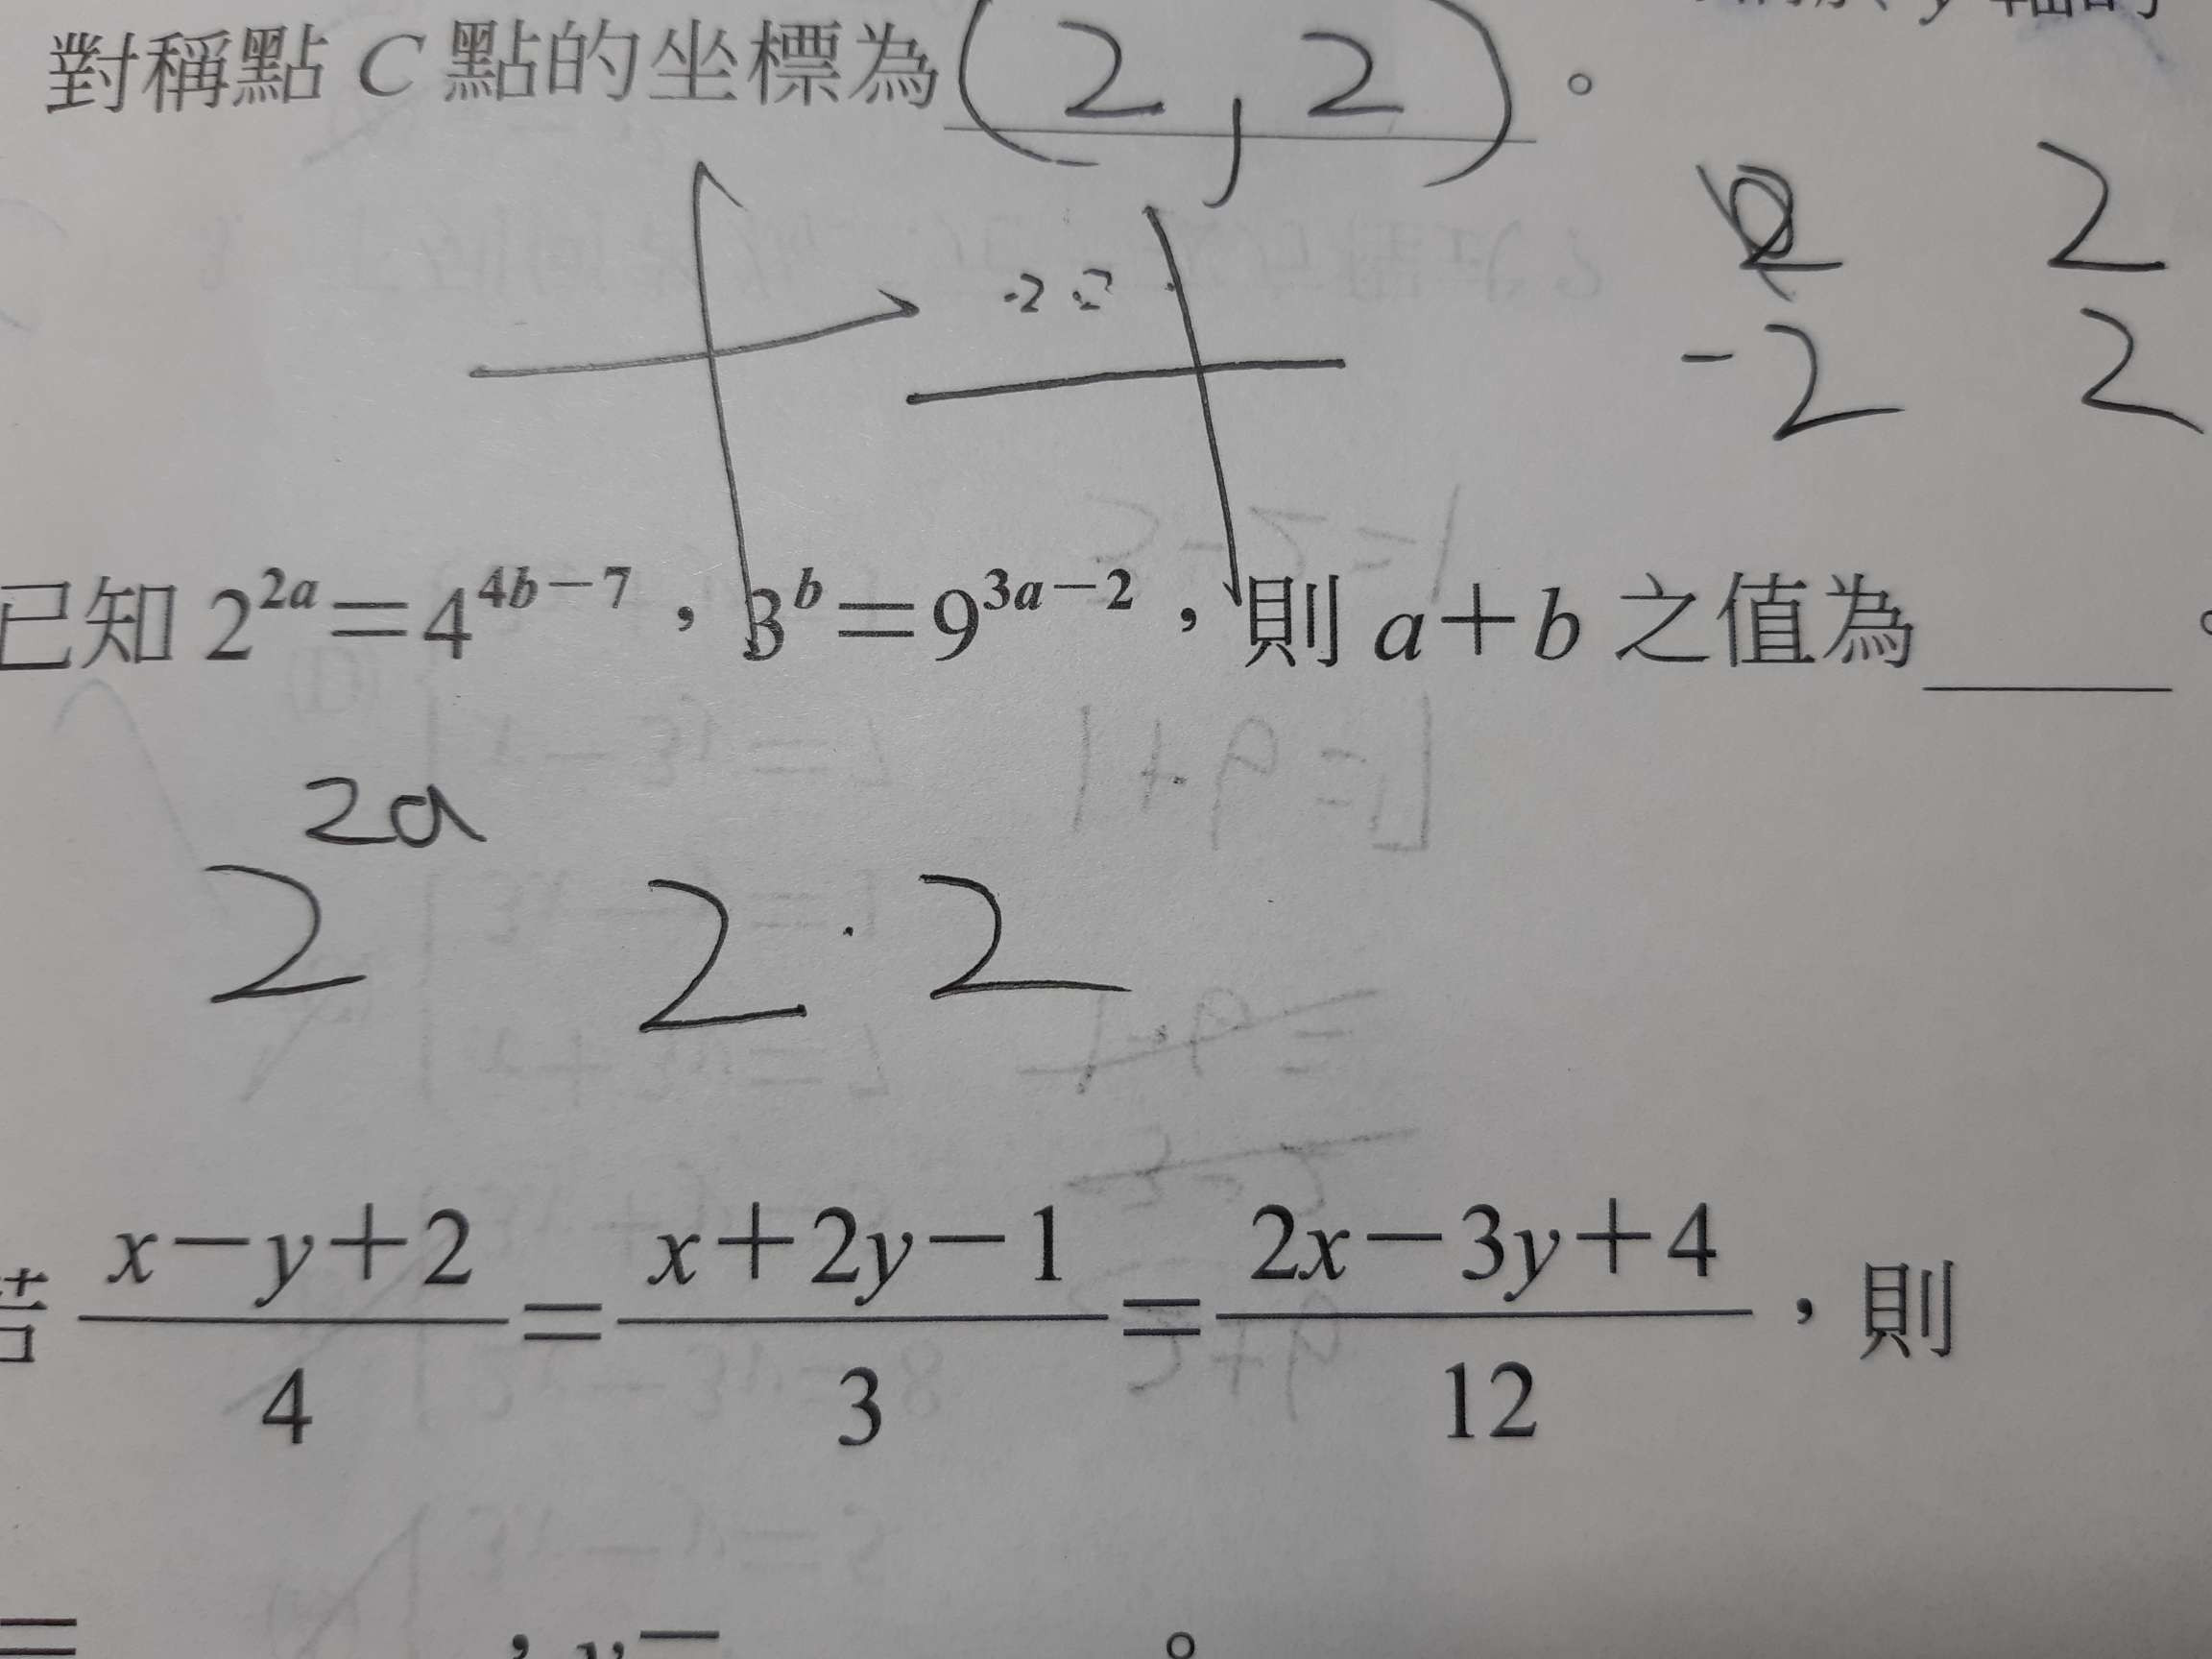 對稱點 C 點的坐標為(2,2)。
2 2
-2 2
-2 2
已知 2^{2a}=4^{4b-7},3^{b}=9^{3a-2},則 a+b 之值為____。
2^{2a} 2·2
若 \frac{x-y+2}{4}=\frac{x+2y-1}{3}=\frac{2x-3y+4}{12},則
= , y= 。